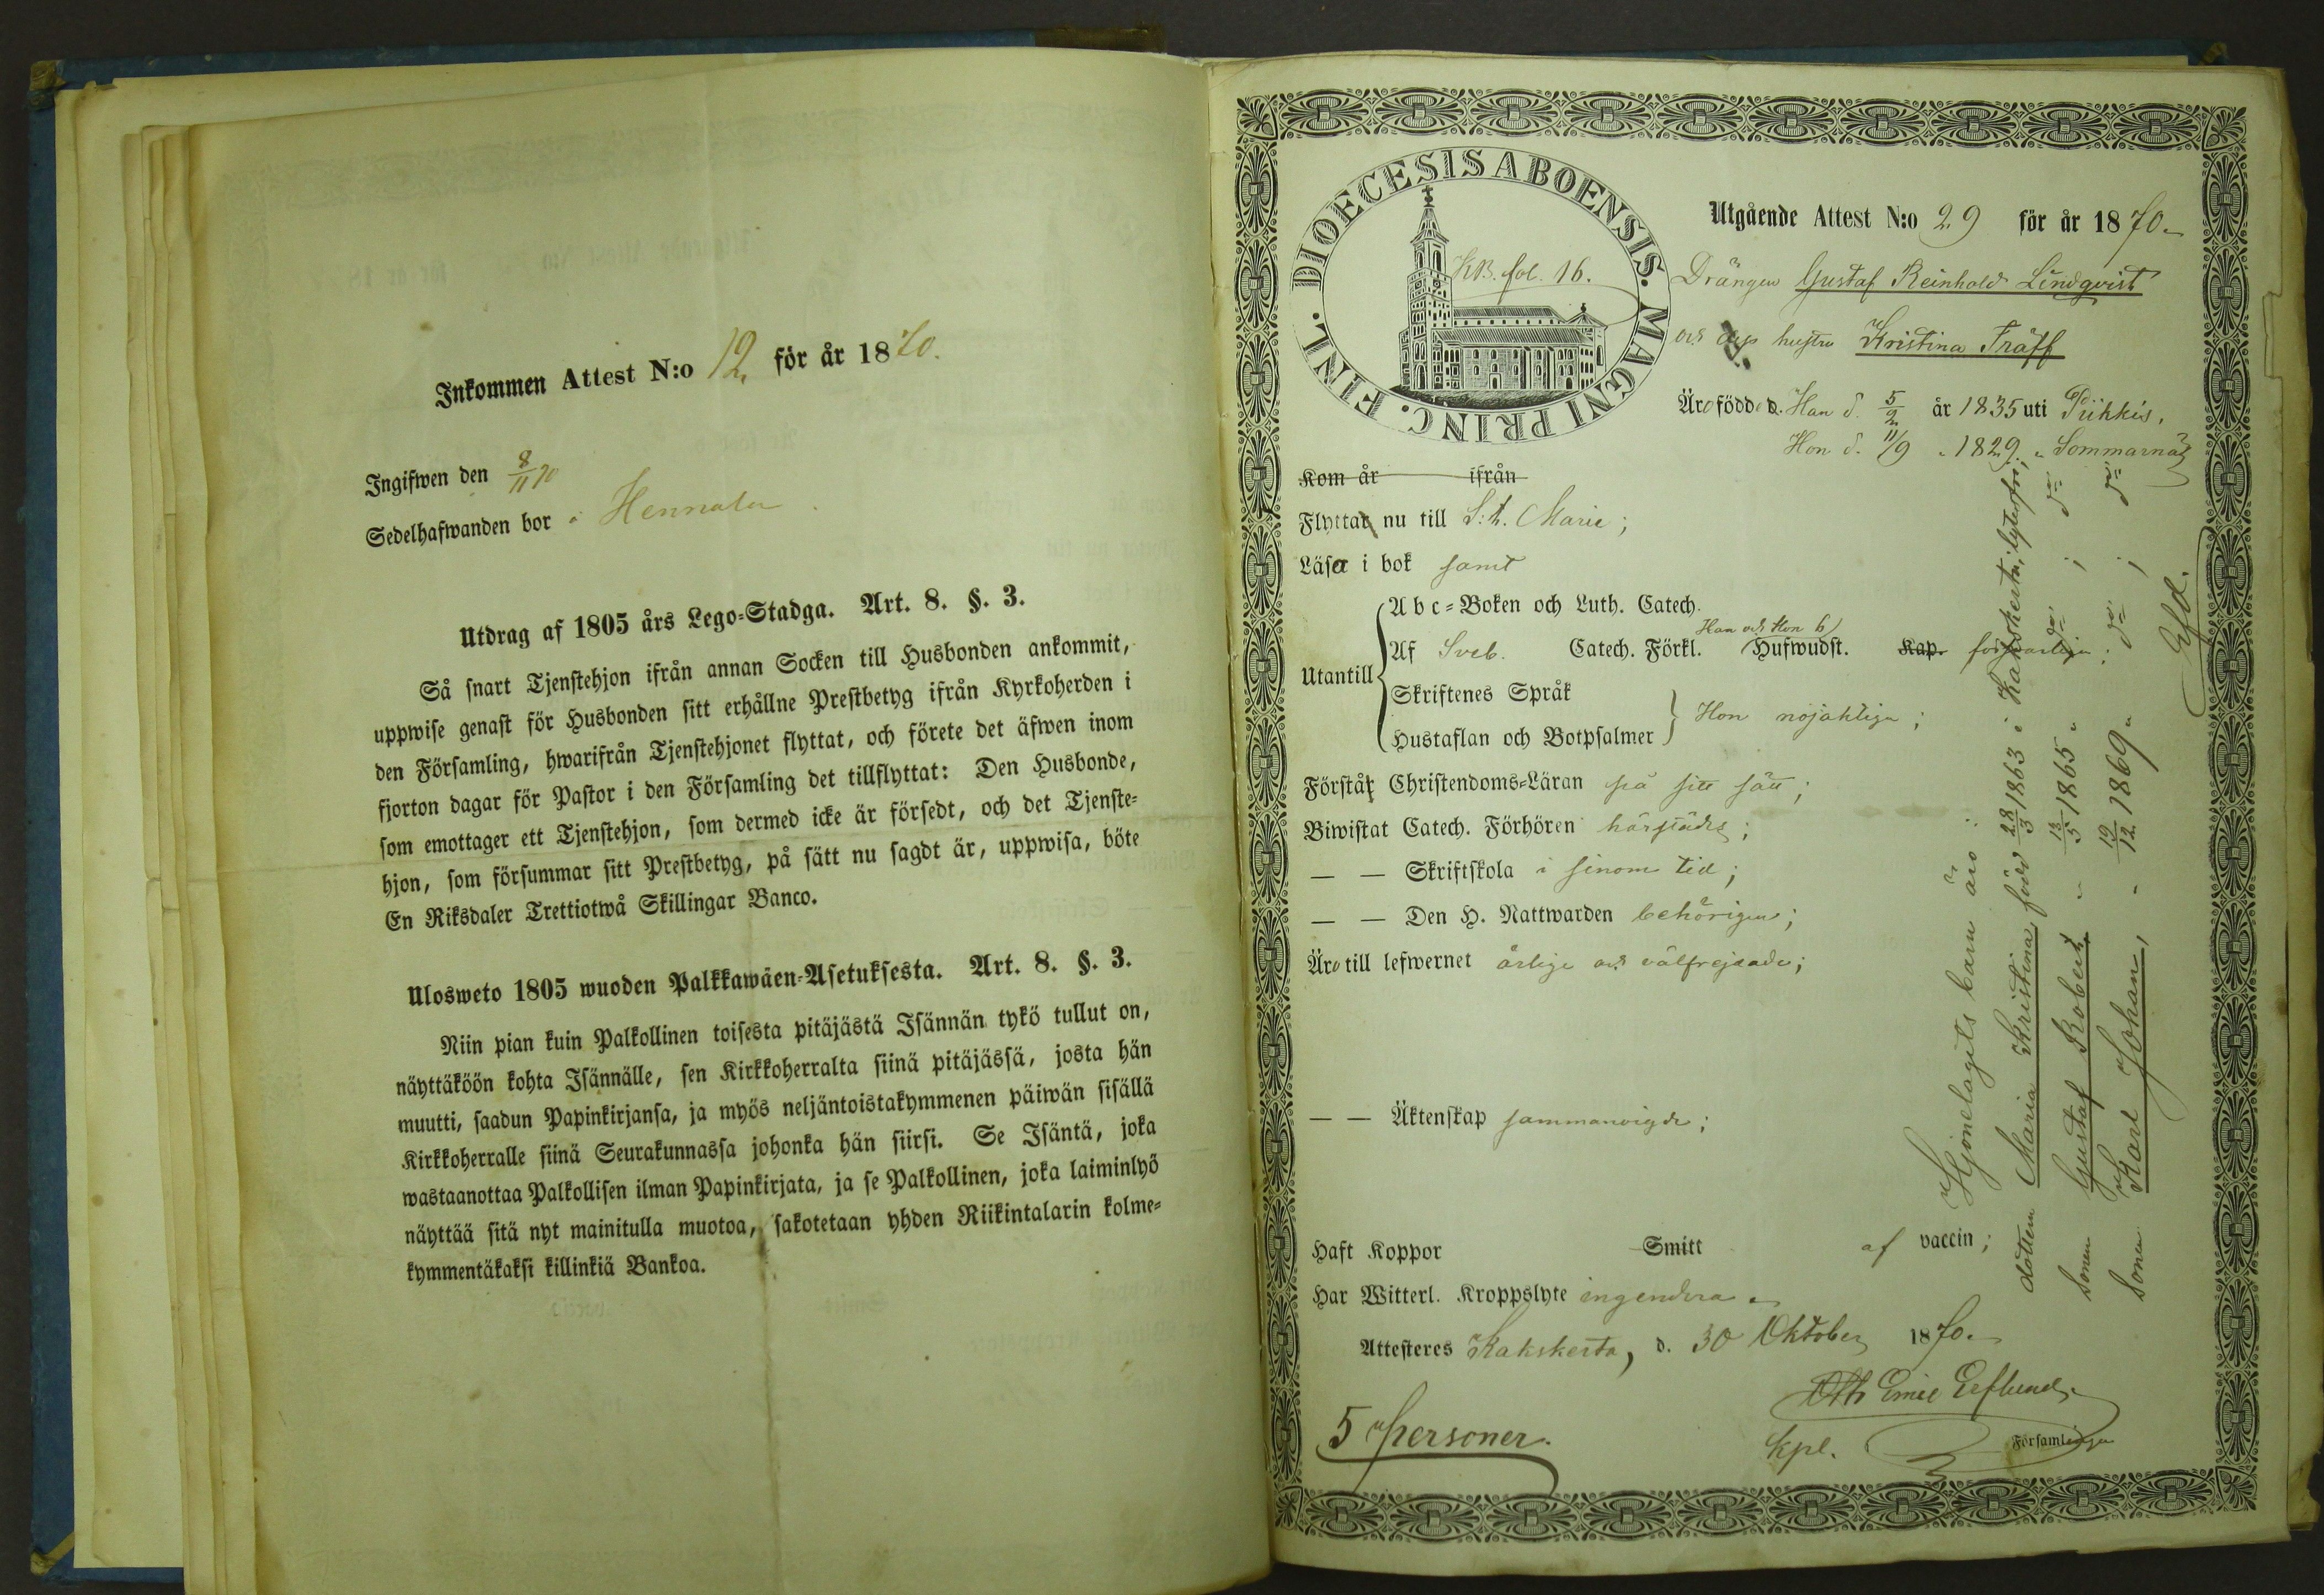 Inkommen Attest N:o 12. för år 1870.
Ingifwen den 8/11 70
Sedelhafwanden bor i Hennala.
Utdrag af 1805 års Lego-Stadga. Art. 8. §. 3.
Så snart Tjenstehjon ifrån annan Socken till Husbonden ankommit,
uppwise genast för Husbonden sitt erhållne Prestbetyg ifrån Kyrkoherden i
den Församling, hwarifrån Tjenstehjonet flyttat, och förete det äfwen inom
fjorton dagar för Pastor i den Församling det tillflyttat: Den Husbonde,
som emottager ett Tjenstehjon, som dermed icke är försedt, och det Tjenste-
hjon, som försummar sitt Prestbetyg, på sätt nu sagdt är, uppwisa, böte
En Riksdaler Trettiotwå Skillingar Banco.
Ulosweto 1805 wuoden Palkkawäen-Asetuksesta. Art. 8. §. 3.
Niin pian kuin Palkollinen toisesta pitäjästä Isännän tykö tullut on,
näyttäköön kohta Isännälle, sen Kirkkoherralta siinä pitäjässä, josta hän
muutti, saadun Papinkirjansa, ja myös neljäntoistakymmenen päiwän sisällä
Kirkkoherralle siinä Seurakunnassa johonka hän siirsi. Se Isäntä, joka
wastaanottaa Palkollisen ilman Papinkirjata, ja se Palkollinen, joka laiminlyö
näyttää sitä nyt mainitulla muotoa, sakotetaan yhden Riikintalarin kolme-
kymmentäkaksi killinkiä Bankoa.
DIOECESIS ABOENSIS. MAGNI PRINC. FINL.
KB. fol. 16.
Utgående Attest N:o 29 för år 1870.
Drängen Gustaf Reinhold Lindqvist
och hustru Kristina Träff
Äro födde. Han d. 5/2 år 1835 uti Piikkis,
Hon d. 11/9 " 1829. " Sommarnäs
Kom år ifrån
Flyttar nu till S:t. Marie;
Läsa i bok samt
Utantill
Abc-Boken och Luth. Catech.
Han och Hon 6
Af Sveb. Catech. Förkl. Hufwudst. Kap. försvarliga;
Skriftenes Språk
Hustaflan och Botpsalmer
Hon nöjaktiga;
Förstår Christendoms-Läran på sitt sätt;
Biwistat Catech. Förhören härstädes;
— — Skriftskola i sinom tid;
— — Den H. Nattwarden behörigen;
Äro till lefwernet ärlige och välfrejdade;
— — Äktenskap sammanvigde;
Haft Koppor Smitt af vaccin;
Har Witterl. Kroppslyte ingendera.
Attesteres Kakskerta, d. 30 Oktober 1870.
Emil Eeflund
5 personer.
kpl. Församlingen
Hjonelagets barn äro:
dottern Maria Kristina, född 28/3 1863 i Kakskerta, lytesfri;
sonen Gustaf Robert, " 13/5 1865 " d:o; d:o
sonen Karl Johan, " 12/12 1869 " d:o; d:o
Efd.